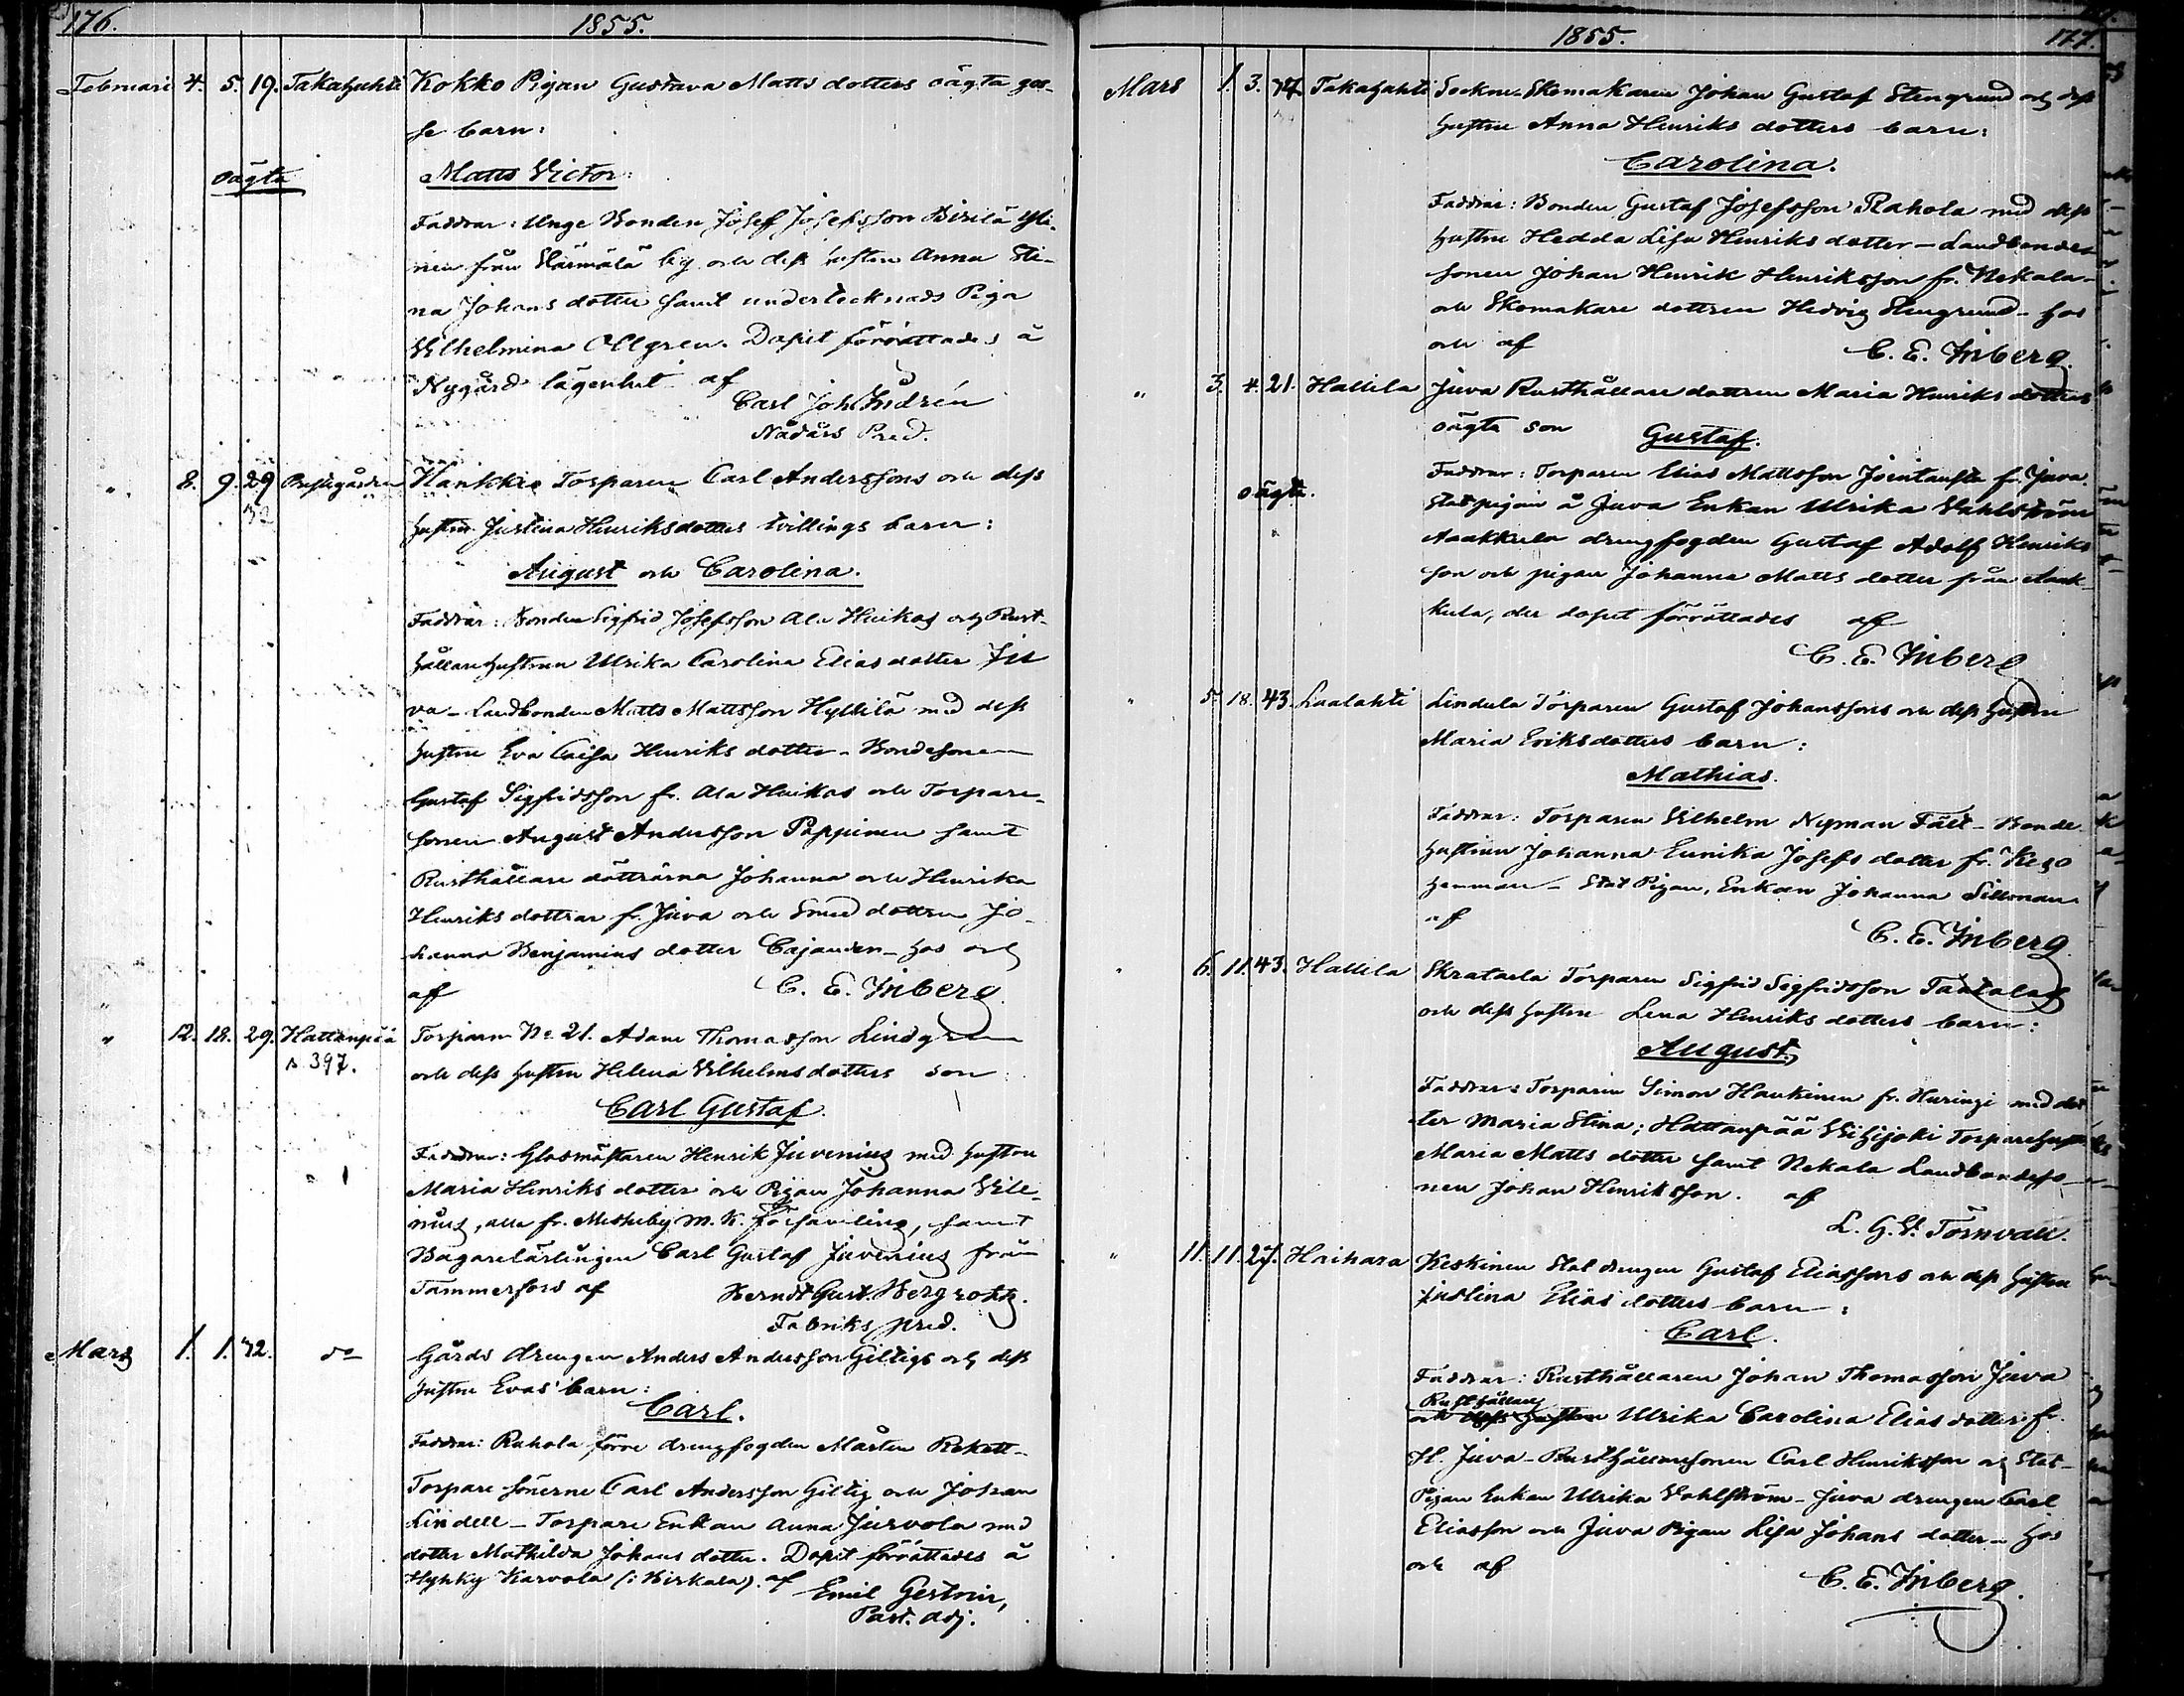 176.
1855.
Februari 4. 5. 19. Takahuhti Kokko Pigan Gustava Matts dotters oägta gos-
se barn:
oägta
Matts Victor:
Faddrar: Unge Bonden Josef Josefsson
nen från Härmälä by och dess hustru Anna Sti-
na Johans dotter samt undertecknads Piga
Wilhelmina Ollgren. Dopet förrättades å
Nygård lägenhet af
Carl Joh. Indrén
Nådårs Pred.
" 8. 9. 29 Prestgården Hankkio Torparen Carl Anderssons och dess
32
hustru Justina Henriksdotters tvillings barn:
August och Carolina.
Faddrar: Bonden Sigfrid Josefsson Ala Huikas och Rust-
hållare hustrun Ulrika Carolina Elias dotter Ju
va - Landbonden Matts Mattsson Hyllilä med dess
hustru Eva Caisa Henriks dotter - Bondesonen
Gustaf Sigfridsson fr. Ala Huikas och Torpare-
sonen August Andersson Pappinen samt
Rusthållare döttrarna Johanna och Henrika
Henriks dottrar fr. Juva och Smed dottren Jo-
hanna Benjamins dotter Cajanden - hos och
af
C. E. Inberg.
" 12. 18. 29. Hattanpää Torparen No 21. Adam Thomasson Lindgren
s 397.
och dess hustru Helena Wilhelms dotters son
Carl Gustaf.
Faddrar: Glasmästaren Henrik Juvenius med hustru
Maria Henriks dotter och Pigan Johanna Wile-
nius, alla fr. Messuby M. K. församling, samt
Bagarelärlingen Carl Gustaf Juvenius från
Tammerfors af
Berndt Gust. Bergroth.
Fabriks pred.
Mars 1. 1. 32. do Gårds drengen Anders Andersson Giltigs och dess
hustru Evas barn:
Carl.
Faddrar: Rahola förre drengfogden Mårten Rekett-
Torpare sönerne Carl Andersson Giltig och Johan
Lindell - Torpare Enkan Anna Jurvola med
dotter Mathilda Johans dotter. Dopet förrättades å
Hyhky Karvola (i Birkala). af
Emil Gestrin,
Past. adj.
1855.
177.
Mars 1. 3. 34 Takahuhti Sockne Skomakaren Johan Gustaf Stengrund och dess
hustru Anna Henriks dotters barn:
Carolina.
Faddrar: Bonden Gustaf Josefsson Rahola med dess
hustru Hedda Lisa Henriks dotter - Landbonde
sonen Johan Henrik Henriksson fr. Nekala -
och Skomakare dottren Hedvig Stengrund - hos
och af
C. E. Inberg.
" 3. 4. 21. Hallila Juva Rusthållare dottren Maria Henriks dotters
oägta son
Gustaf.
oägta.
Faddrar: Torparen Elias Mattsson fr. Juva.
Statpigan å Juva Enkan Ulrika Wahlström
Aakkula drengfogden Gustaf Adolf Henriks
son och pigan Johanna Matts dotter från Aak-
kula, der dopet förrättades af
C. E. Inberg
" 5. 18. 43. Laalahti Lindula Torparen Gustaf Johanssons och dess hustru
Maria Eriksdotters barn:
Mathias.
Faddrar: Torparen Wilhelm Nyman Fält - Bonde
hustrun Johanna Eunika Josefs dotter fr. Keso
hemman - Stat Pigan, Enkan Johanna Sillman
af
C. E. Inberg
" 6. 11. 43. Hallila Skrataela Torparen Sigfrid Sigfridsson Taatalas
och dess hustru Lena Henriks dotters barn:
August,
Faddrar: Torparen Simon Haukinen fr. Huringi med dot
ter Maria Stina; Hattanpää Wihijoki Torpare hustru
Maria Matts dotter samt Nekala Landbondeso-
nen Johan Henriksson. af
L. G. W. Törnvall.
" 11. 11. 27. Haihara Keskinen Stat drengen Gustaf Eliassons och dess hustru
Justina Elias dotters barn:
Carl.
Faddrar: Rusthållaren Johan Thomasson Juva
Rusthållare
och dess hustru Ulrika Carolina Elias dotter fr.
H. Juva - Rusthållaresonen Carl Henriksson och Stat-
Pigan Enkan Ulrika Wahlström - Juva drengen Carl
Eliasson och Juva Pigan Lisa Johans dotter - hos
och af
C. E. Inberg.